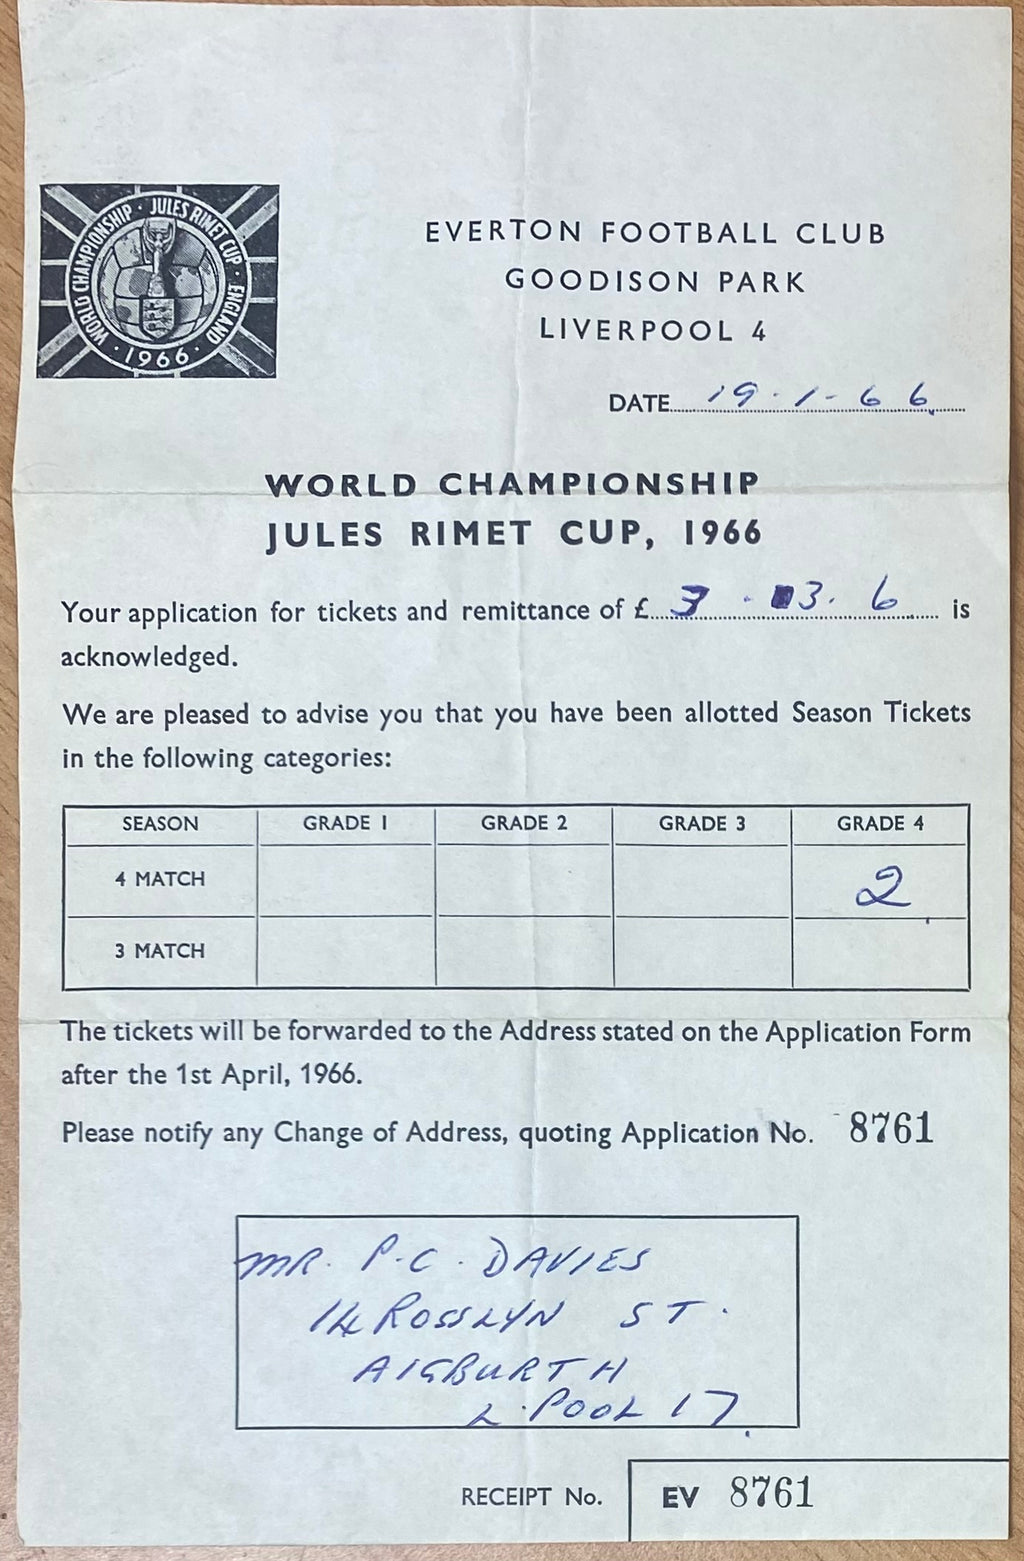 WORLD CHAMPIONSHIP · JULES RIMET CUP · ENGLAND
· 1966 ·
EVERTON FOOTBALL CLUB
GOODISON PARK
LIVERPOOL 4
DATE 19.1-66
WORLD CHAMPIONSHIP
JULES RIMET CUP, 1966
Your application for tickets and remittance of £ 3 . 3. 6 is
acknowledged.
We are pleased to advise you that you have been allotted Season Tickets
in the following categories:
SEASON GRADE 1 GRADE 2 GRADE 3 GRADE 4
4 MATCH 2
3 MATCH
The tickets will be forwarded to the Address stated on the Application Form
after the 1st April, 1966.
Please notify any Change of Address, quoting Application No. 8761
MR. P.C. DAVIES
14 ROSSLYN ST.
AIGBURTH
L.POOL 17
RECEIPT No. EV 8761